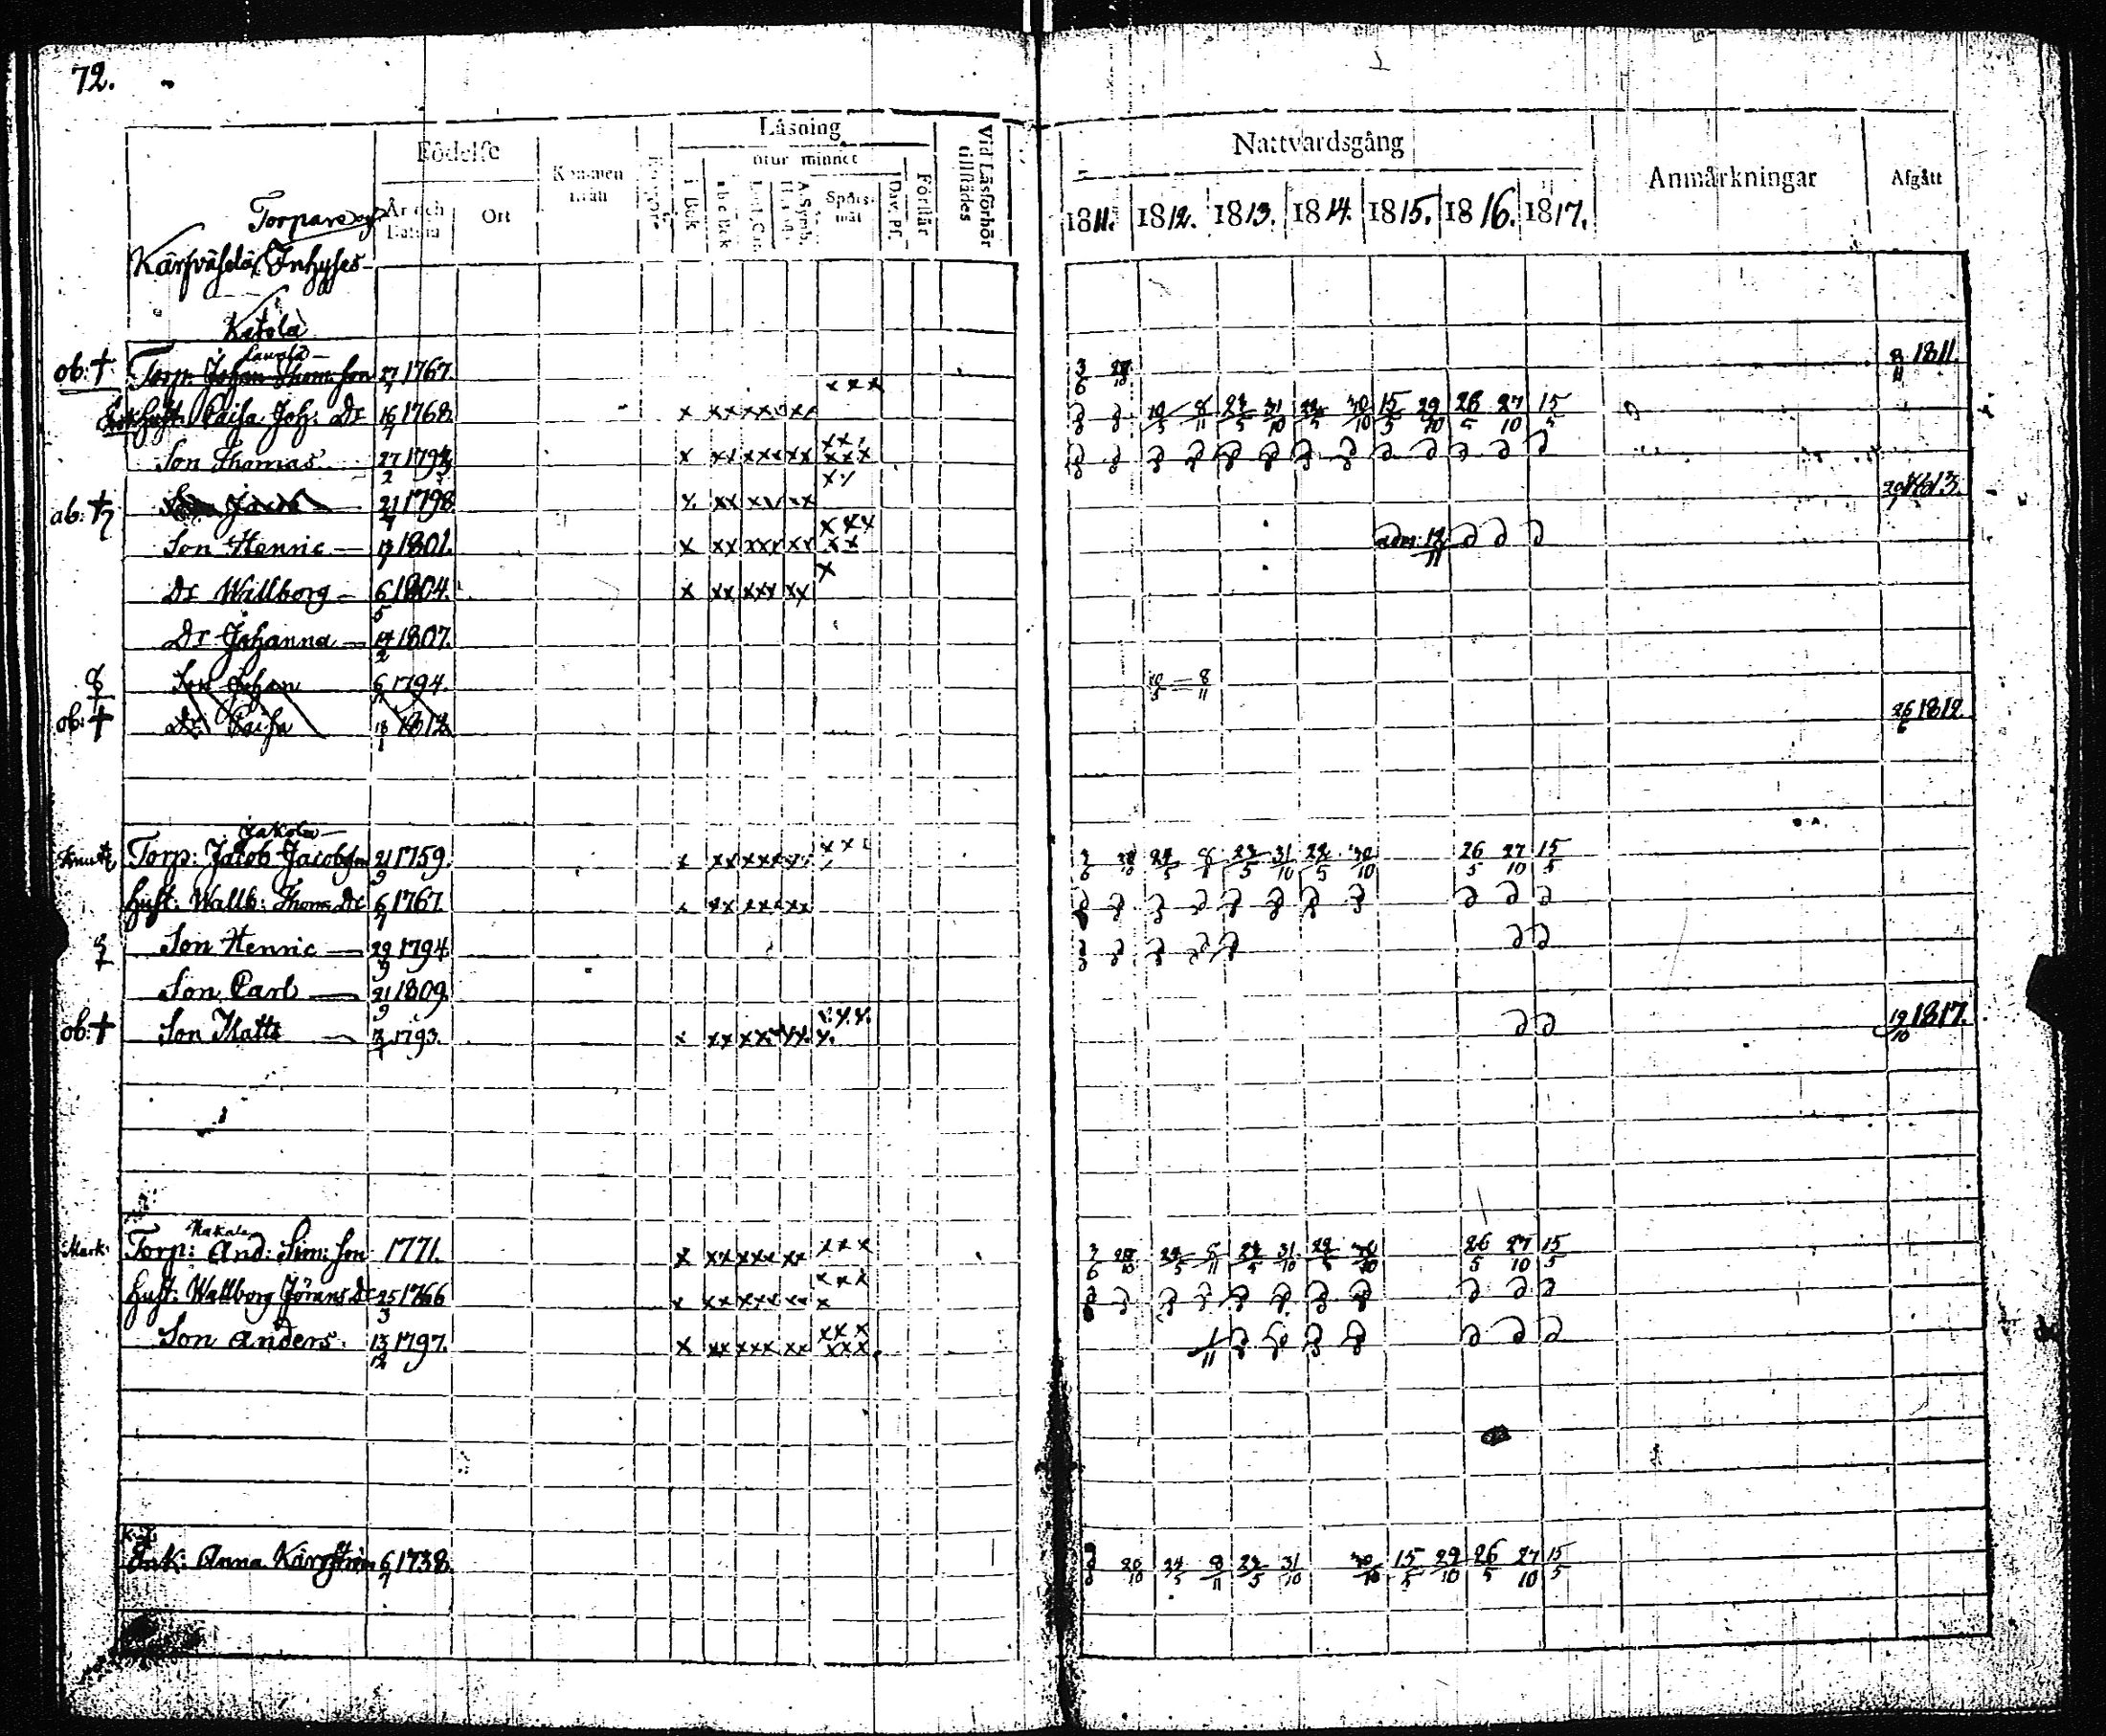 72.
Födelse
Läsning
utur minnet
Vid Läsförhör tillstädes
Nattvardsgång
Anmärkningar
Afgått
År och Datum
Ort
Kommen ifrån
i Bok
Spörs-mål
Dav. Ps.
Förstår
1811. 1812. 1813. 1814. 1815. 1816. 1817.
Torpare och
Inhyses
Katola
ob: † Torp: Johan Thom: son 27/7 1767. 3/6 28/10 8/11 1811.
hust. Caisa Joh: Dr 16/7 1768. x xx xxx xx xxx 10/5 8/11 23/5 31/10 22/5 30/10 15/5 29/10 26/5 27/10 15/5
Son Thomas 27/2 1793 x xx xxx xx xxx
ab: Jacob 21/7 1798 x xx xx xx 1813.
Son Henric — 1801. x xx xxx xx xx adm: 12/11
Dr Wallborg — 6/5 1804. x xx xxx xx x
Dr Johanna — 14/2 1807.
Son Johan 6/11 1794. 10/5 8/11
ob: † Dr Caisa 18/1 1812 26/6 1812.
Jakola
Torp: Jacob Jacobsson 21/9 1759. x xx xxx xx 3/6 28/10 24/5 8/11 23/5 31/10 22/5 30/10 26/5 27/10 15/5
hust: Wallb: Thoms Dr 6/7 1767. x xx xxx xx
Son Henric — 29/9 1794
Son Carl — 21/9 1809.
ob: † Son Matts — 1793. x xx xxx xx x 19/10 1817.
Nakala
Mark: Torp: And: Sim: son 1771. x xx xxx xx xxx 3/6 28/10 24/5 8/11 23/5 31/10 22/5 30/10 26/5 27/10 15/5
hust: Wallborg Jörans Dr 25/3 1766 x xx xxx xx x
Son Anders. 13/12 1797. x xx xxx xx xxx 1/11
Enk: Anna Kärrström 6/7 1738. 28/10 24/5 8/11 23/5 31/10 30/10 15/5 29/10 26/5 27/10 15/5